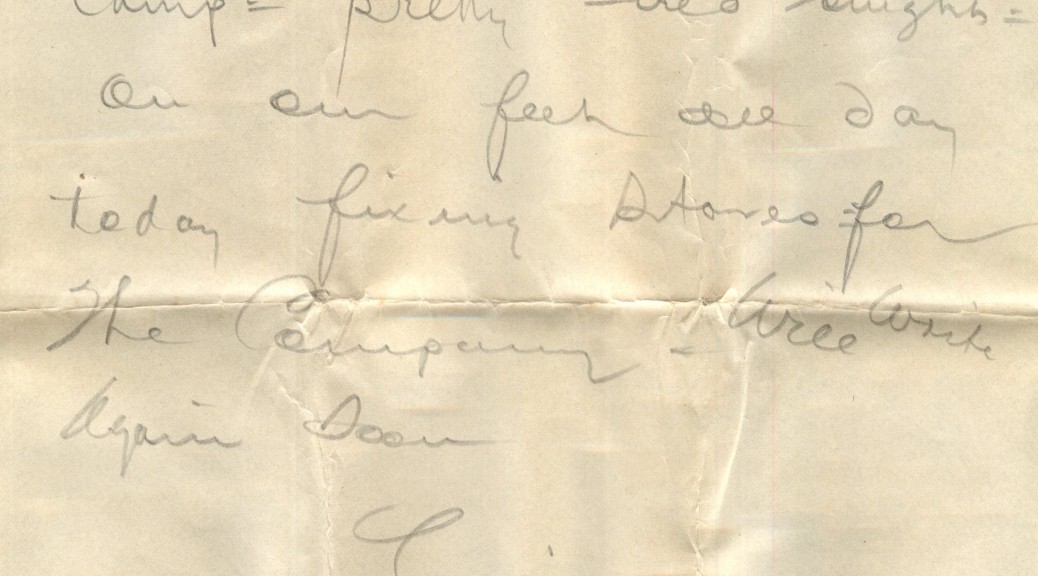 Camp = pretty tired tonight =
On our feet all day
today fixing stoves for
The Company - Will Write
Again Soon